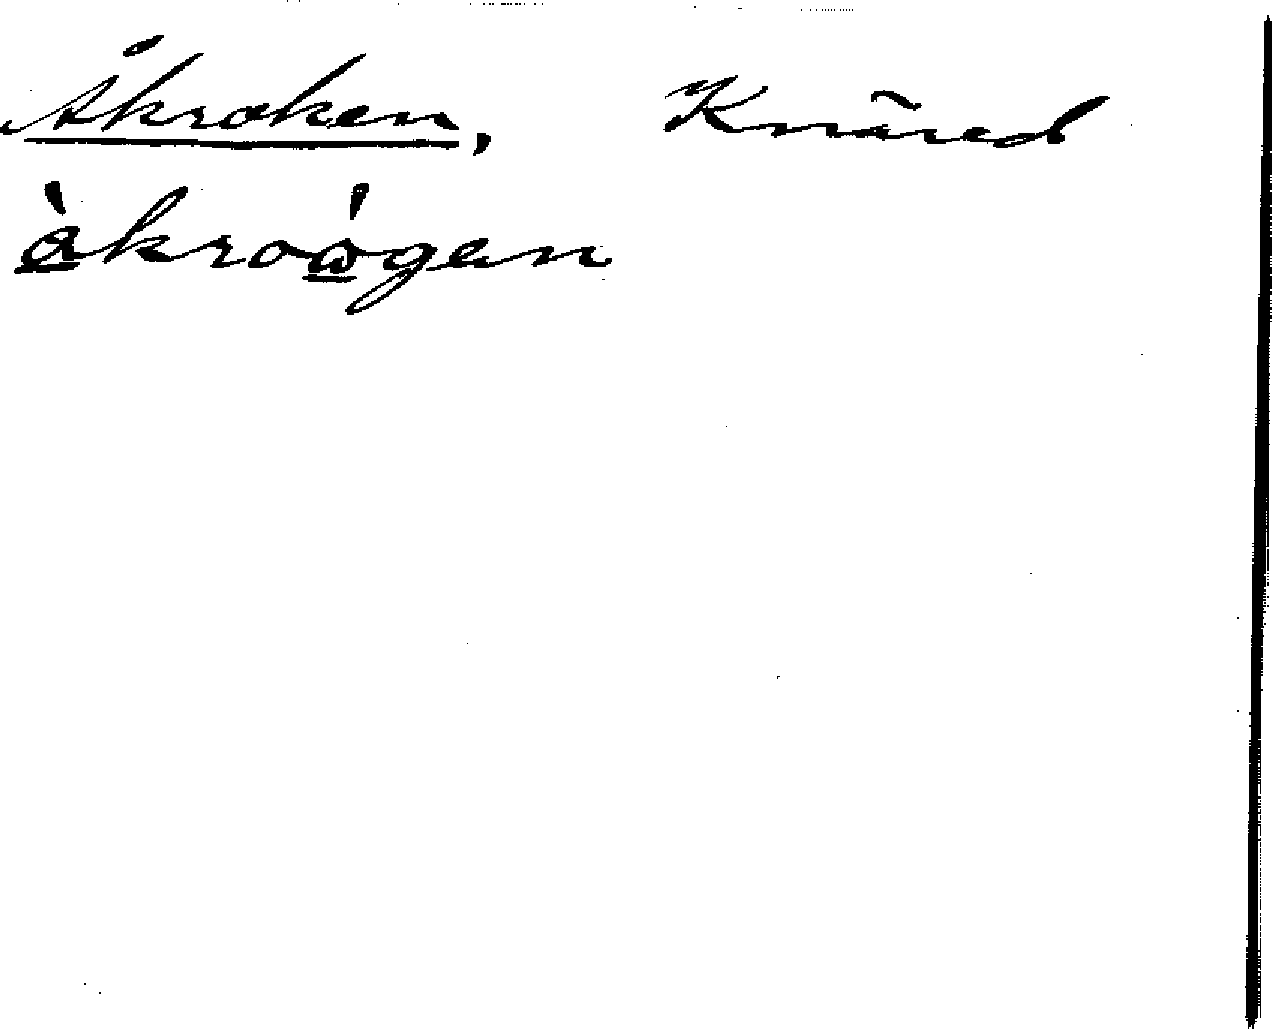 Åkroken, Knäred
åkroωgen